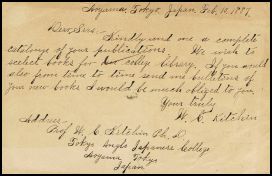 Aoyama, Tokyo, Japan, Feb. 10, 1887.
Dear Sirs.
Kindly send me a complete
catalogue of your publications. We wish to
select books for our college library. If you would
also from time to time send me bulletins of
your new books I would be much obliged to you.
Yours truly
W. C. Kitchin
Address:
Prof. W. C. Kitchin Ph. D.
Tokyo Anglo Japanese College
Aoyama Tokyo
Japan